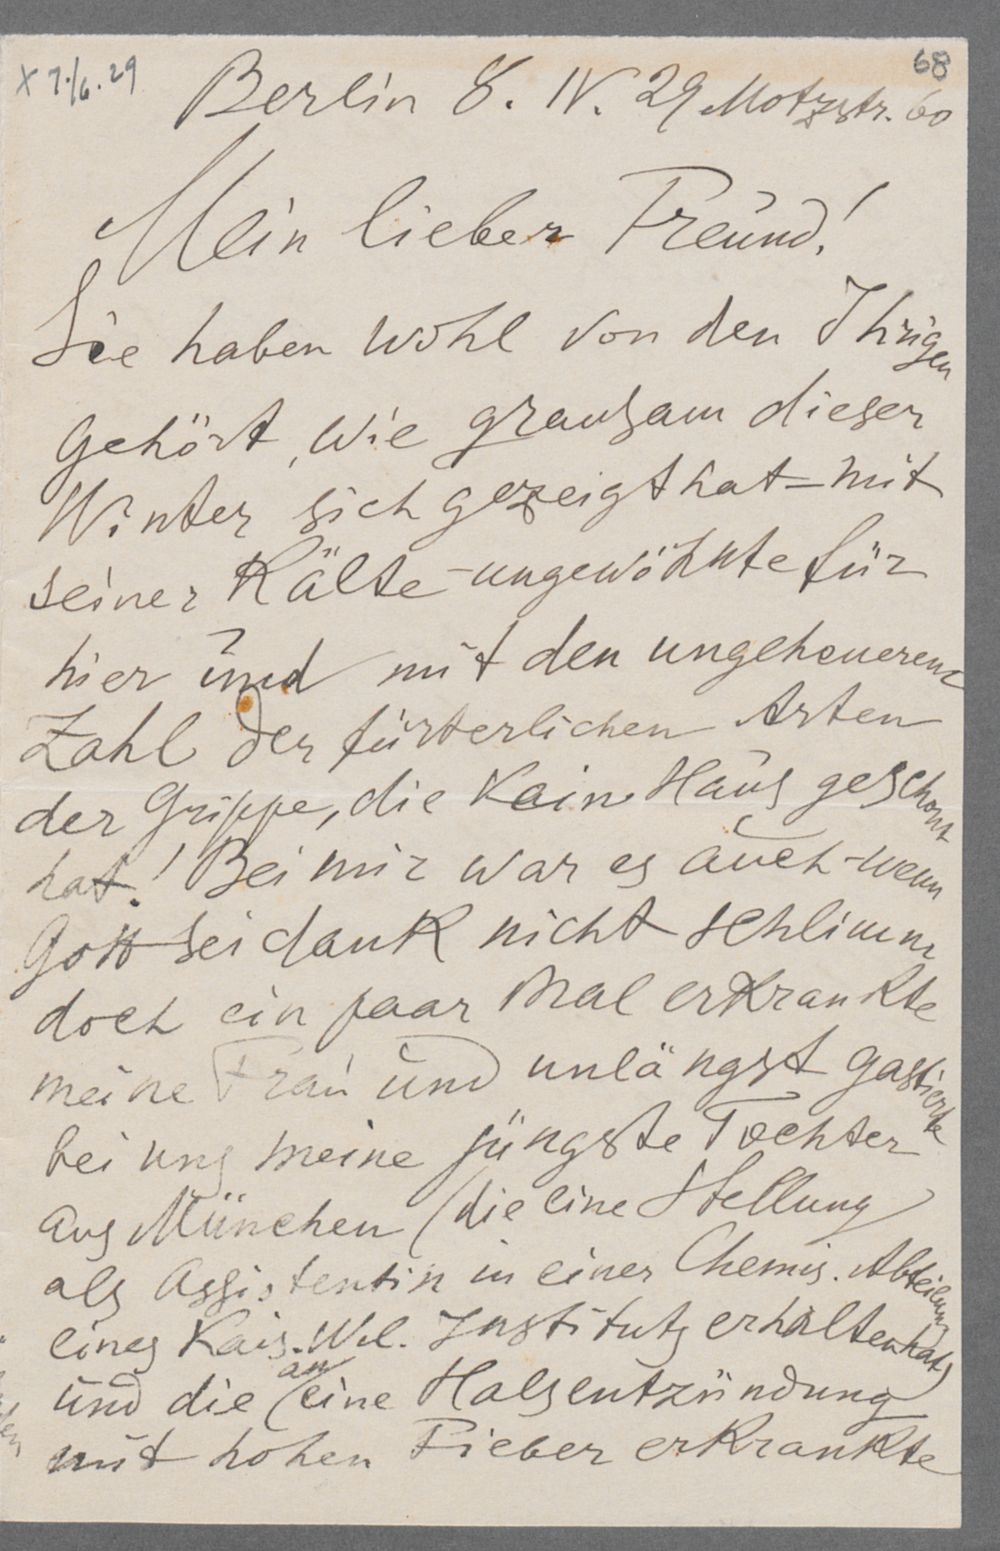 x 7./6. 29
68
Berlin 8. IV. 29 Motzstr. 60
Mein lieber Freund!
Sie haben wohl von den Ihrigen
gehört, wie grausam dieser
Winter sich gezeigt hat – mit
seiner Kälte – ungewöhnte für
hier und mit den ungeheueren
Zahl der fürterlichen Arten
der Grippe, die kein Haus geschont
hat! Bei mir war es auch – wenn
Gott sei dank nicht schlimm
doch ein paar Mal erkrankte
meine Frau und unlängst gastierte
bei uns meine jüngste Tochter
aus München (die eine Stellung
als Assistentin in einer Chemis. Abteilung
eines Kais. Wil. Instituts erhalten hat)
und die an eine Halsentzündung
mit hohen Fieber erkrankte